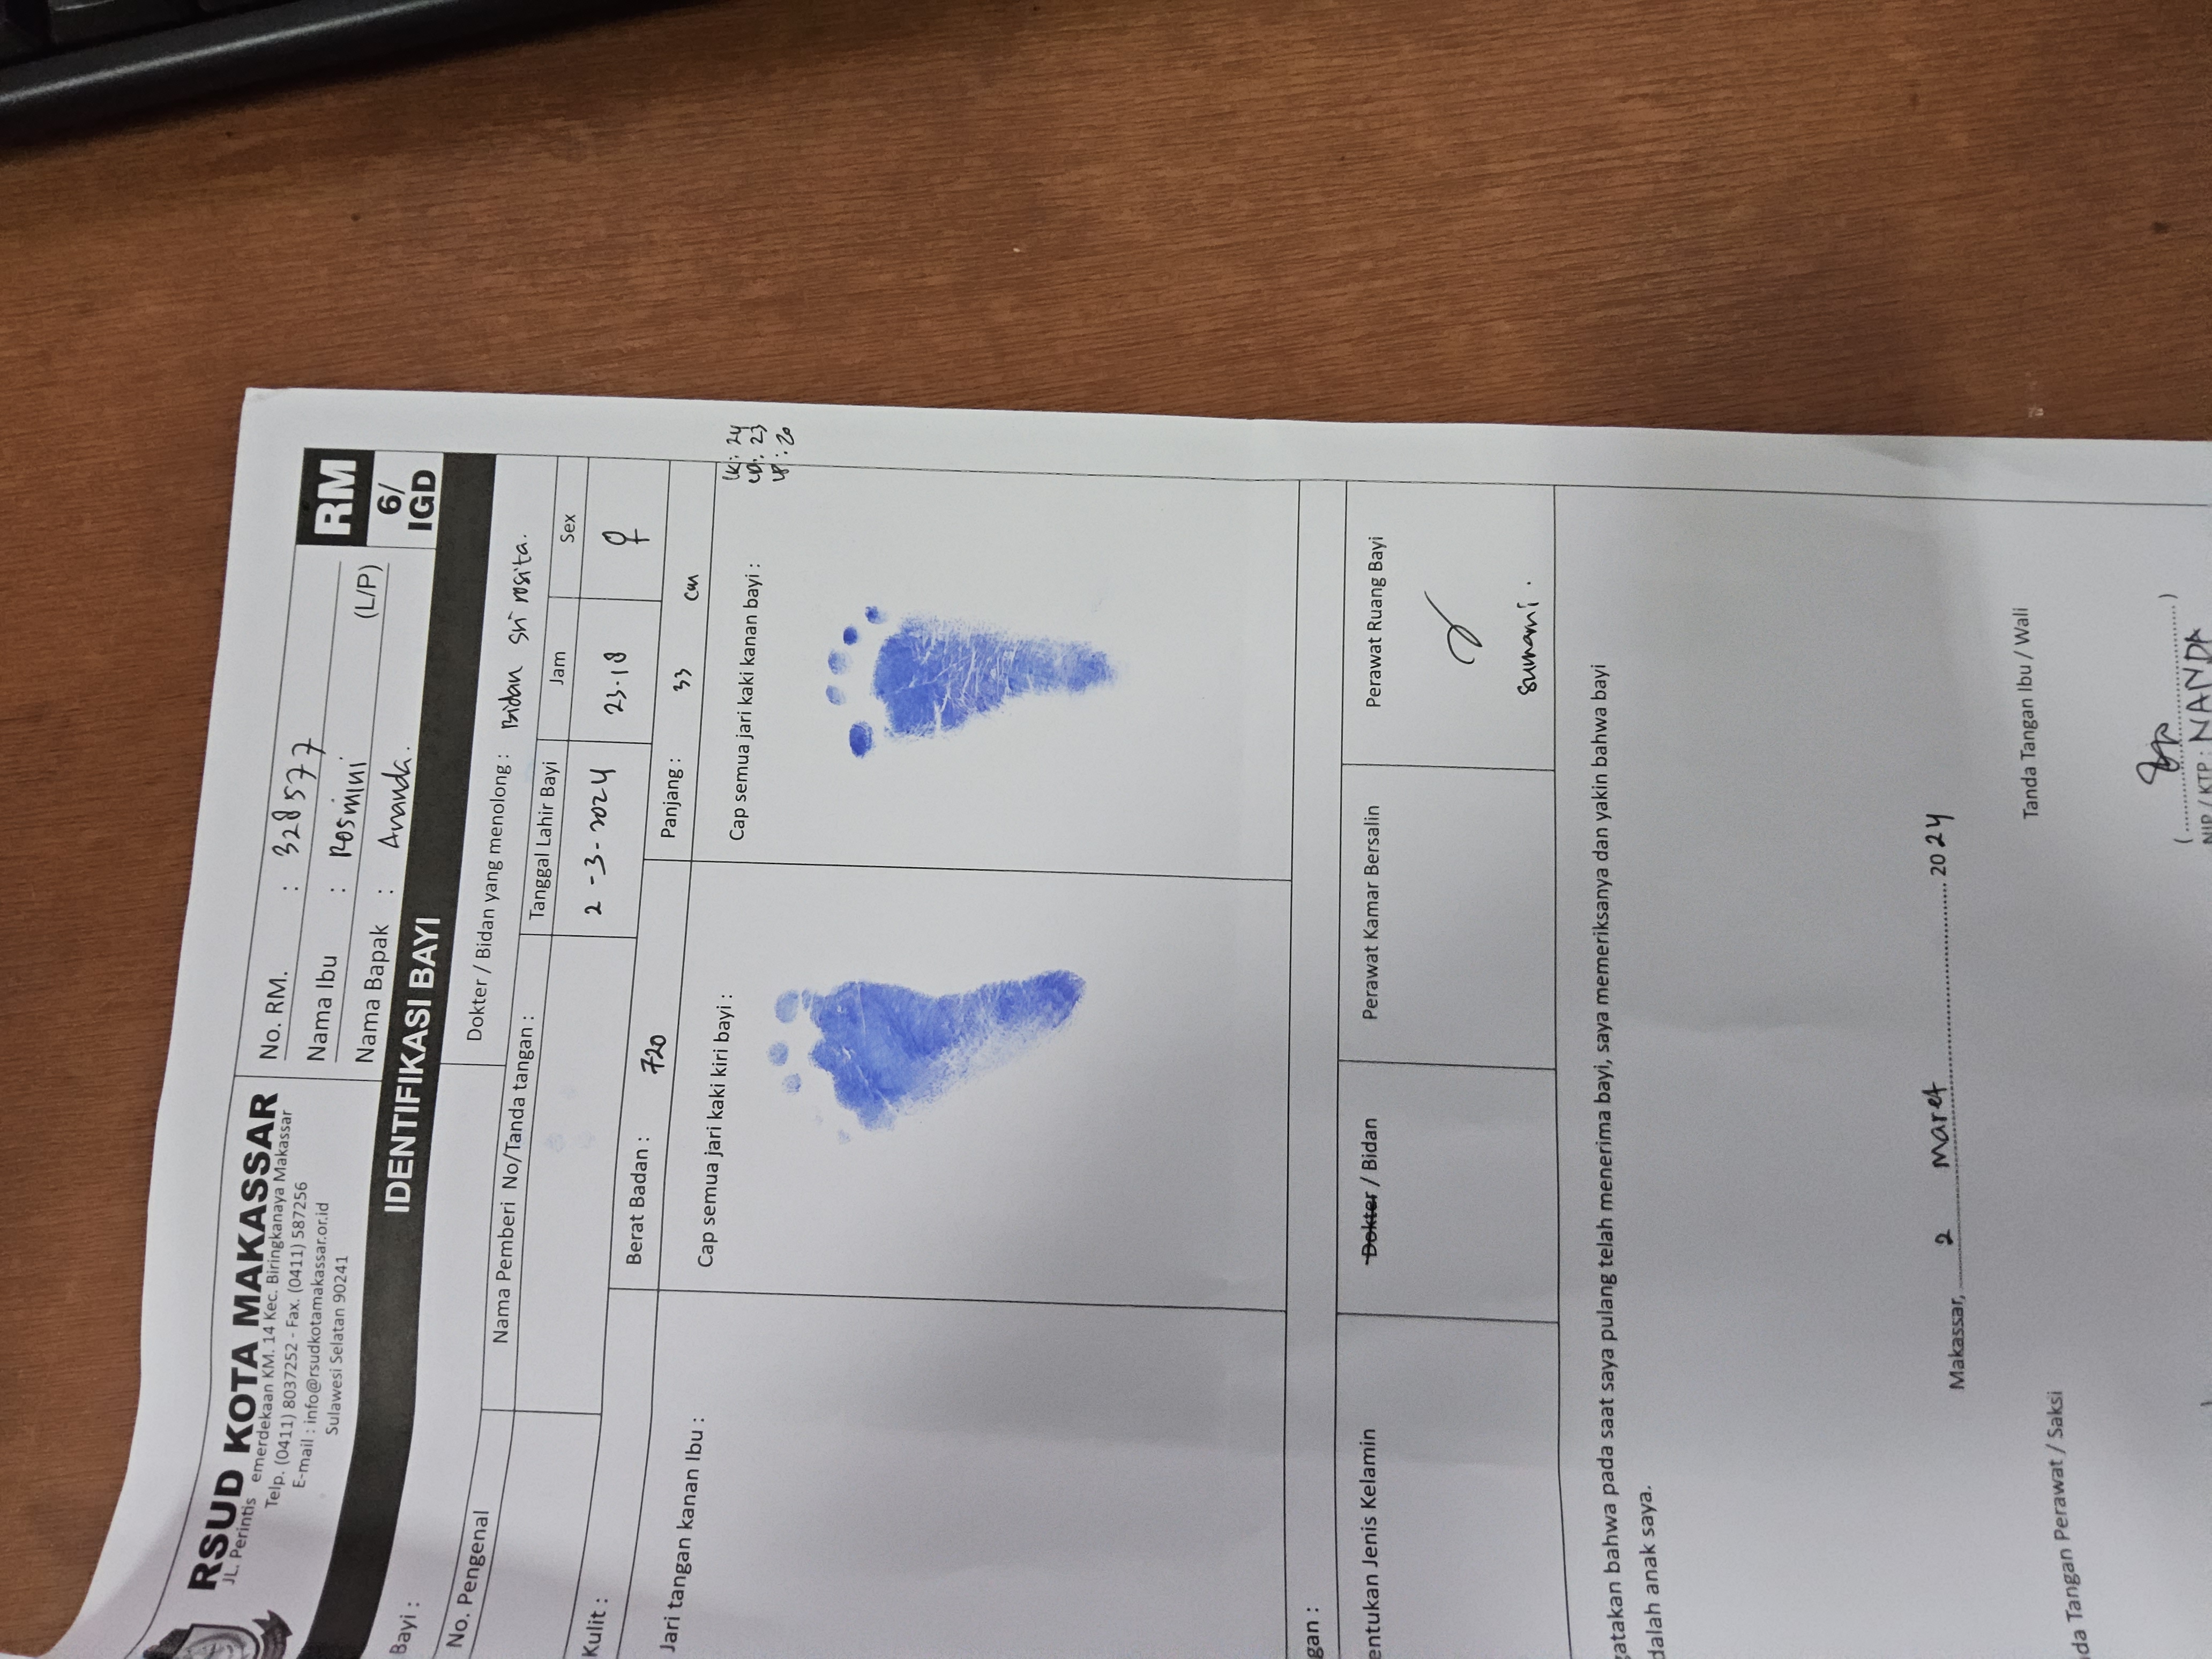 RSUD KOTA MAKASSAR
JL. Perintis emerdekaan KM. 14 Kec. Biringkanaya Makassar
Telp. (0411) 8037252 - Fax. (0411) 587256
E-mail : info@rsudkotamakassar.or.id
Sulawesi Selatan 90241
No. RM. : 328577
Nama Ibu : Rosmini (L/P)
Nama Bapak : Ananda.
RM
6/
IGD
IDENTIFIKASI BAYI
Bayi :
Dokter / Bidan yang menolong : Bidan Sri rosita.
No. Pengenal
Nama Pemberi No/Tanda tangan :
Tanggal Lahir Bayi
Jam
Sex
2 -3- 2024
23.18
♀
Kulit :
Berat Badan : 720
Panjang : 33 cm
Jari tangan kanan Ibu :
Cap semua jari kaki kiri bayi :
Cap semua jari kaki kanan bayi :
LK : 24
LD : 23
LP : 20
gan :
entukan Jenis Kelamin
Dokter / Bidan
Perawat Kamar Bersalin
Perawat Ruang Bayi
gatakan bahwa pada saat saya pulang telah menerima bayi, saya memeriksanya dan yakin bahwa bayi
dalah anak saya.
Makassar, 2 Maret 2024
Tanda Tangan Ibu / Wali
da Tangan Perawat / Saksi
(..............................)
NIP / KTP : NANDA